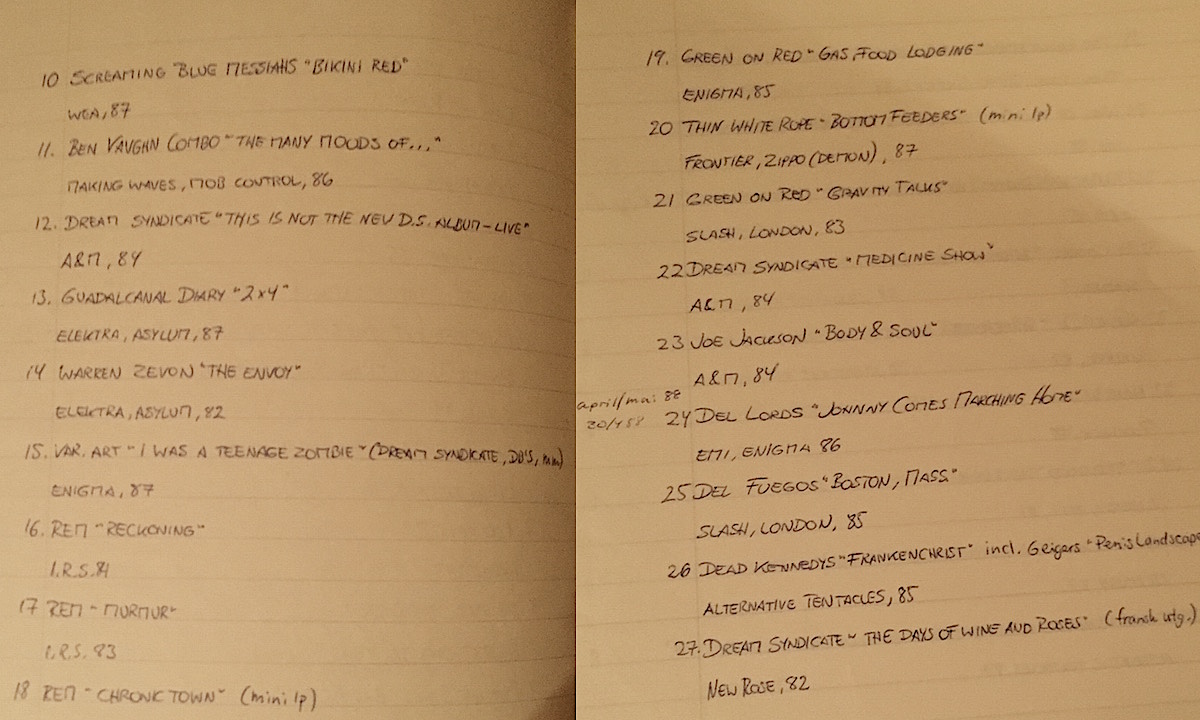 10 SCREAMING BLUE MESSIAHS "BIKINI RED"
WEA, 87
11. BEN VAUGHN COMBO "THE MANY MOODS OF..."
MAKING WAVES, MOB CONTROL, 86
12. DREAM SYNDICATE "THIS IS NOT THE NEW D.S. ALBUM - LIVE"
A&M, 84
13. GUADALCANAL DIARY "2x4"
ELEKTRA, ASYLUM, 87
14 WARREN ZEVON "THE ENVOY"
ELEKTRA, ASYLUM, 82
15. VAR. ART "I WAS A TEENAGE ZOMBIE" (DREAM SYNDICATE, DB'S, mm)
ENIGMA, 87
16. REM "RECKONING"
I.R.S. 84
17 REM "MURMUR"
I.R.S. 83
18 REM "CHRONIC TOWN" (mini lp)
19. GREEN ON RED "GAS, FOOD LODGING"
ENIGMA, 85
20 THIN WHITE ROPE "BOTTOM FEEDERS" (mini lp)
FRONTIER, ZIPPO (DEMON), 87
21 GREEN ON RED "GRAVITY TALKS"
SLASH, LONDON, 83
22 DREAM SYNDICATE "MEDICINE SHOW"
A&M, 84
23 JOE JACKSON "BODY & SOUL"
A&M, 84
april/mai 88
24 DEL LORDS "JOHNNY COMES MARCHING HOME"
EMI, ENIGMA 86
25 DEL FUEGOS "BOSTON, MASS."
SLASH, LONDON, 85
26 DEAD KENNEDYS "FRANKENCHRIST" incl. Geigers "Penis Landscape
ALTERNATIVE TENTACLES, 85
27. DREAM SYNDICATE "THE DAYS OF WINE AND ROSES" (fransk utg.)
NEW ROSE, 82